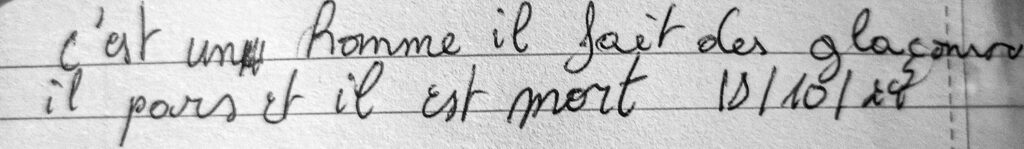 c'est un homme il fait des glaçons
il pars et il est mort